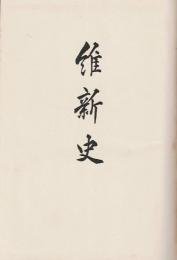 維新史